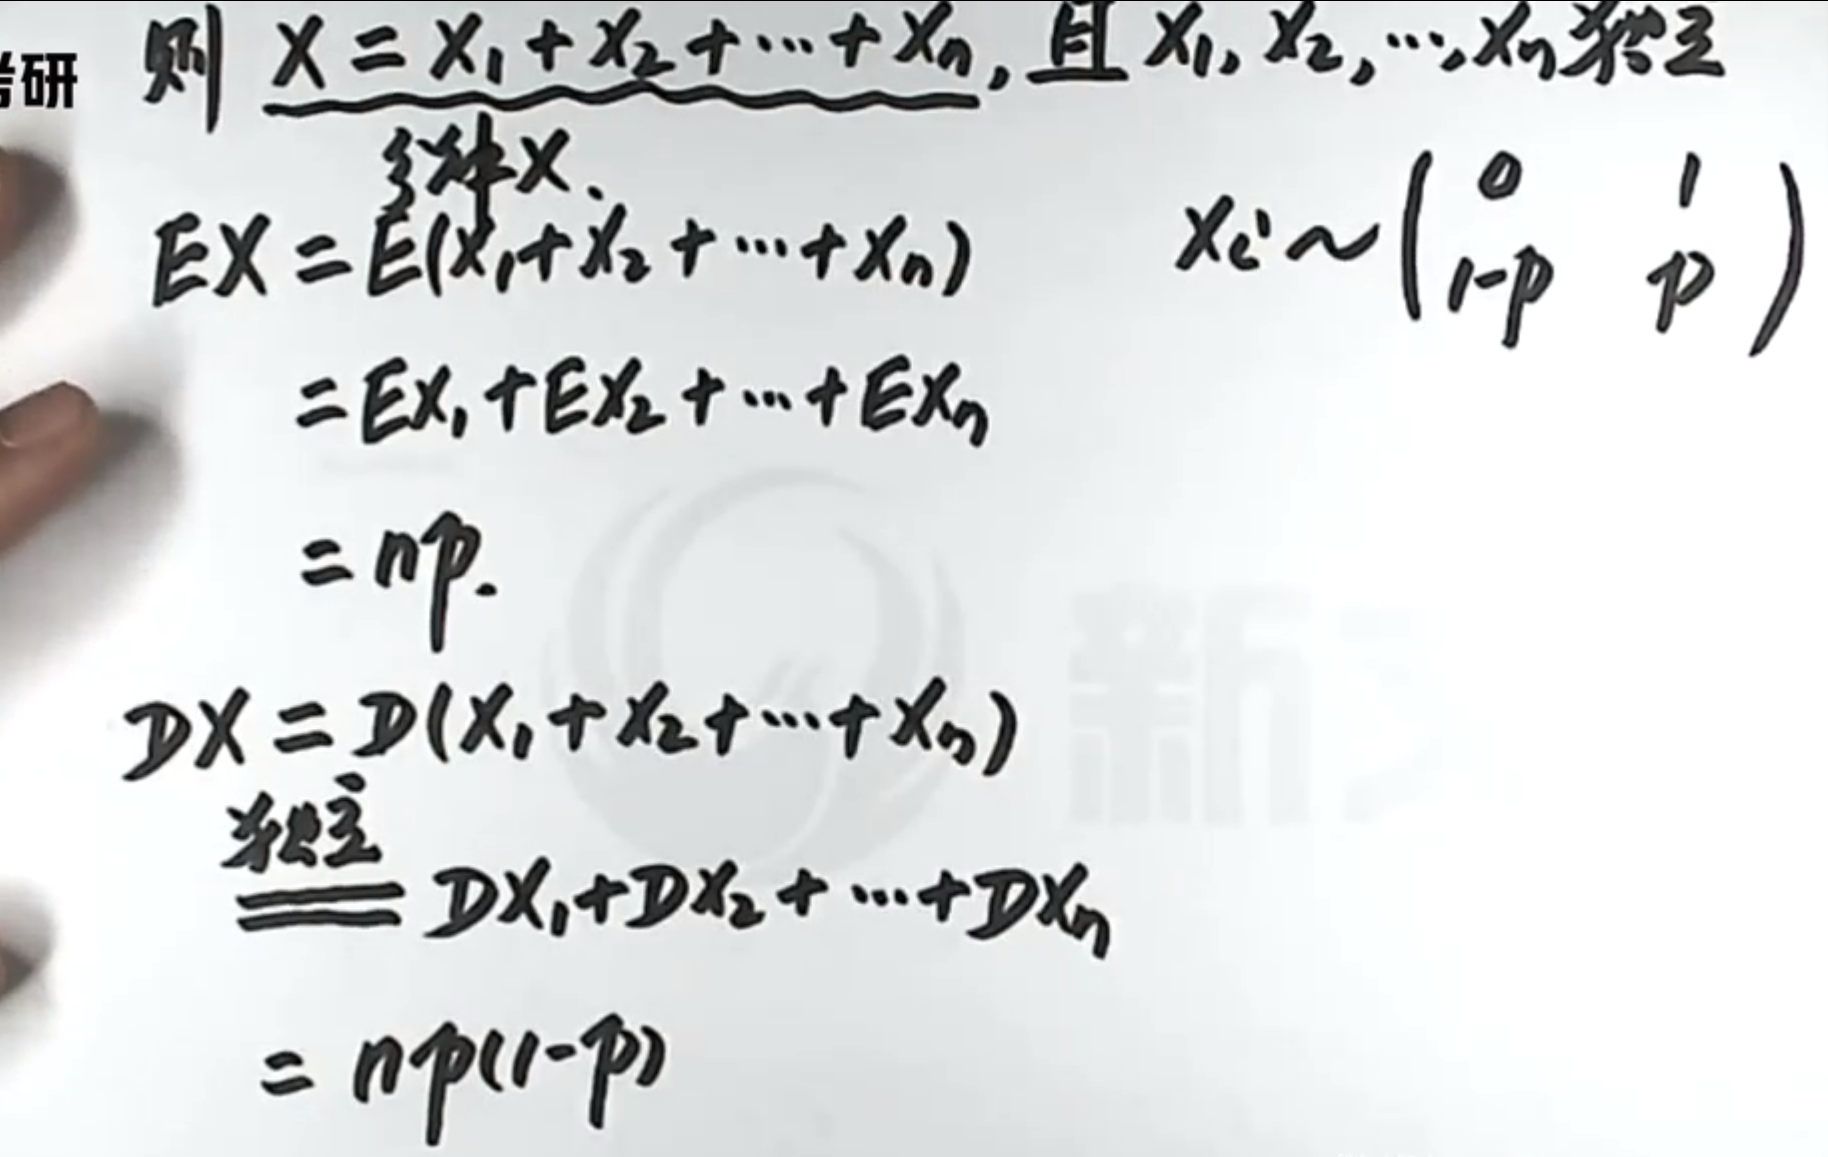 考研
则 X = X₁ + X₂ + ⋯ + Xₙ, 且 X₁, X₂, ⋯, Xₙ 独立
分解X.
Xᵢ ~ ( 0 1
1-p p )
EX = E(X₁ + X₂ + ⋯ + Xₙ)
= EX₁ + EX₂ + ⋯ + EXₙ
= np.
DX = D(X₁ + X₂ + ⋯ + Xₙ)
独立
= DX₁ + DX₂ + ⋯ + DXₙ
= np(1-p)